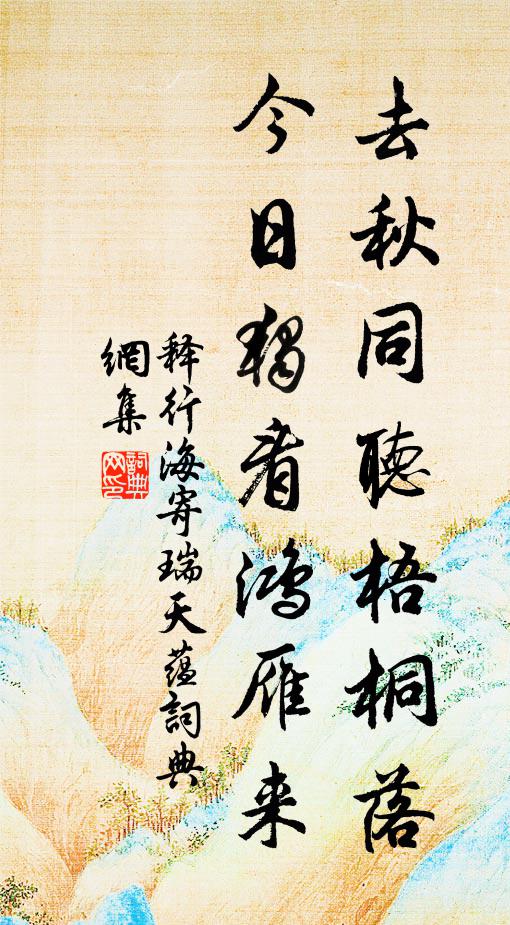 去秋同聽梧桐落
今日独看鴻雁来
释行海寄瑞天蕴詞典
網集
詞典网印